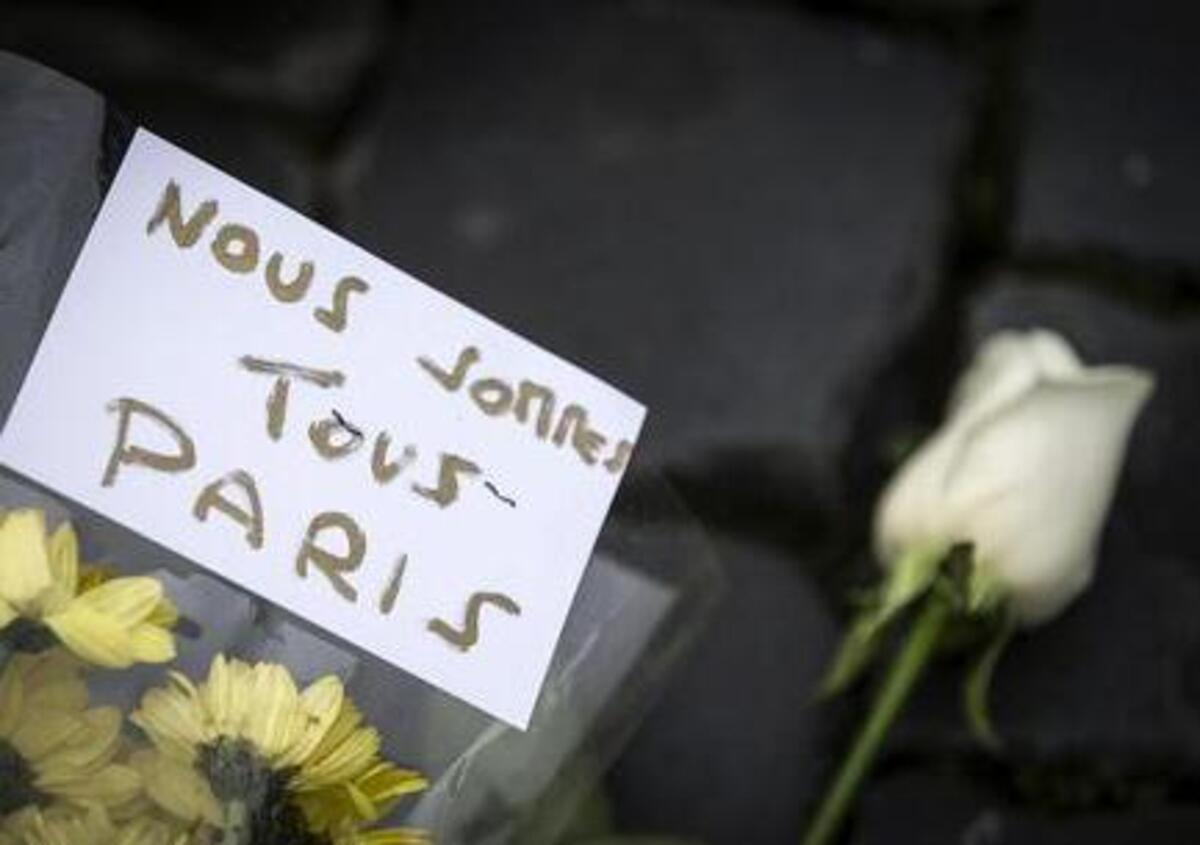 NOUS SOMMES
TOUS
PARIS